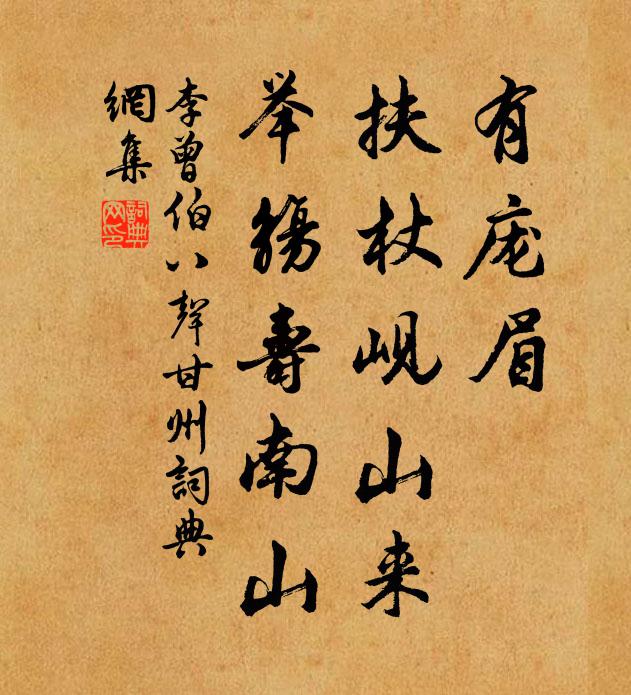 有庞眉
扶杖岘山来
举觞寿南山
李曾伯八聲甘州詞典
網集
詞典
网印